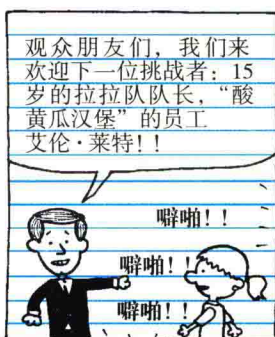 观众朋友们，我们来
欢迎下一位挑战者：15
岁的拉拉队队长，“酸
黄瓜汉堡”的员工
艾伦·莱特！！
噼啪！！
噼啪！！
噼啪！！